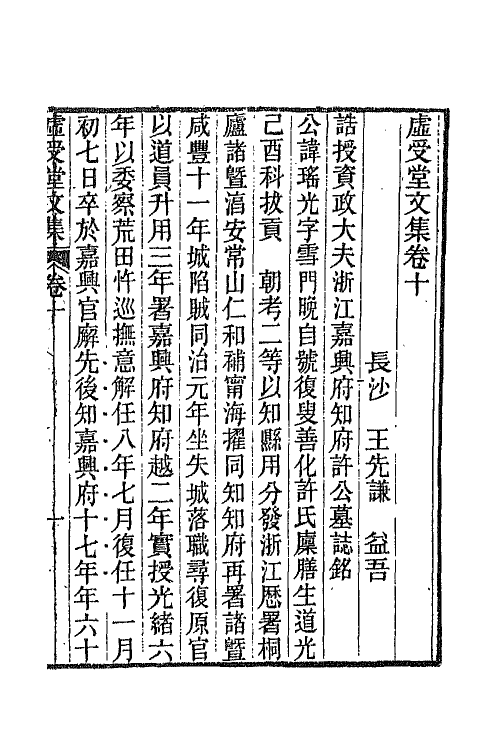 虛受堂文集卷十
長沙　王先謙　益吾
誥授資政大夫浙江嘉興府知府許公墓誌銘
公諱瑤光字雪門晚自號復叟善化許氏廩膳生道光
己酉科拔貢　朝考二等以知縣用分發浙江歷署桐
廬諸曁淯安常山仁和補甯海擢同知知府再署諸曁
咸豐十一年城陷賊同治元年坐失城落職尋復原官
以道員升用三年署嘉興府知府越二年實授光緒六
年以委察荒田忤巡撫意解任八年七月復任十一月
初七日卒於嘉興官廨先後知嘉興府十七年年六十
虛受堂文集　卷十　一